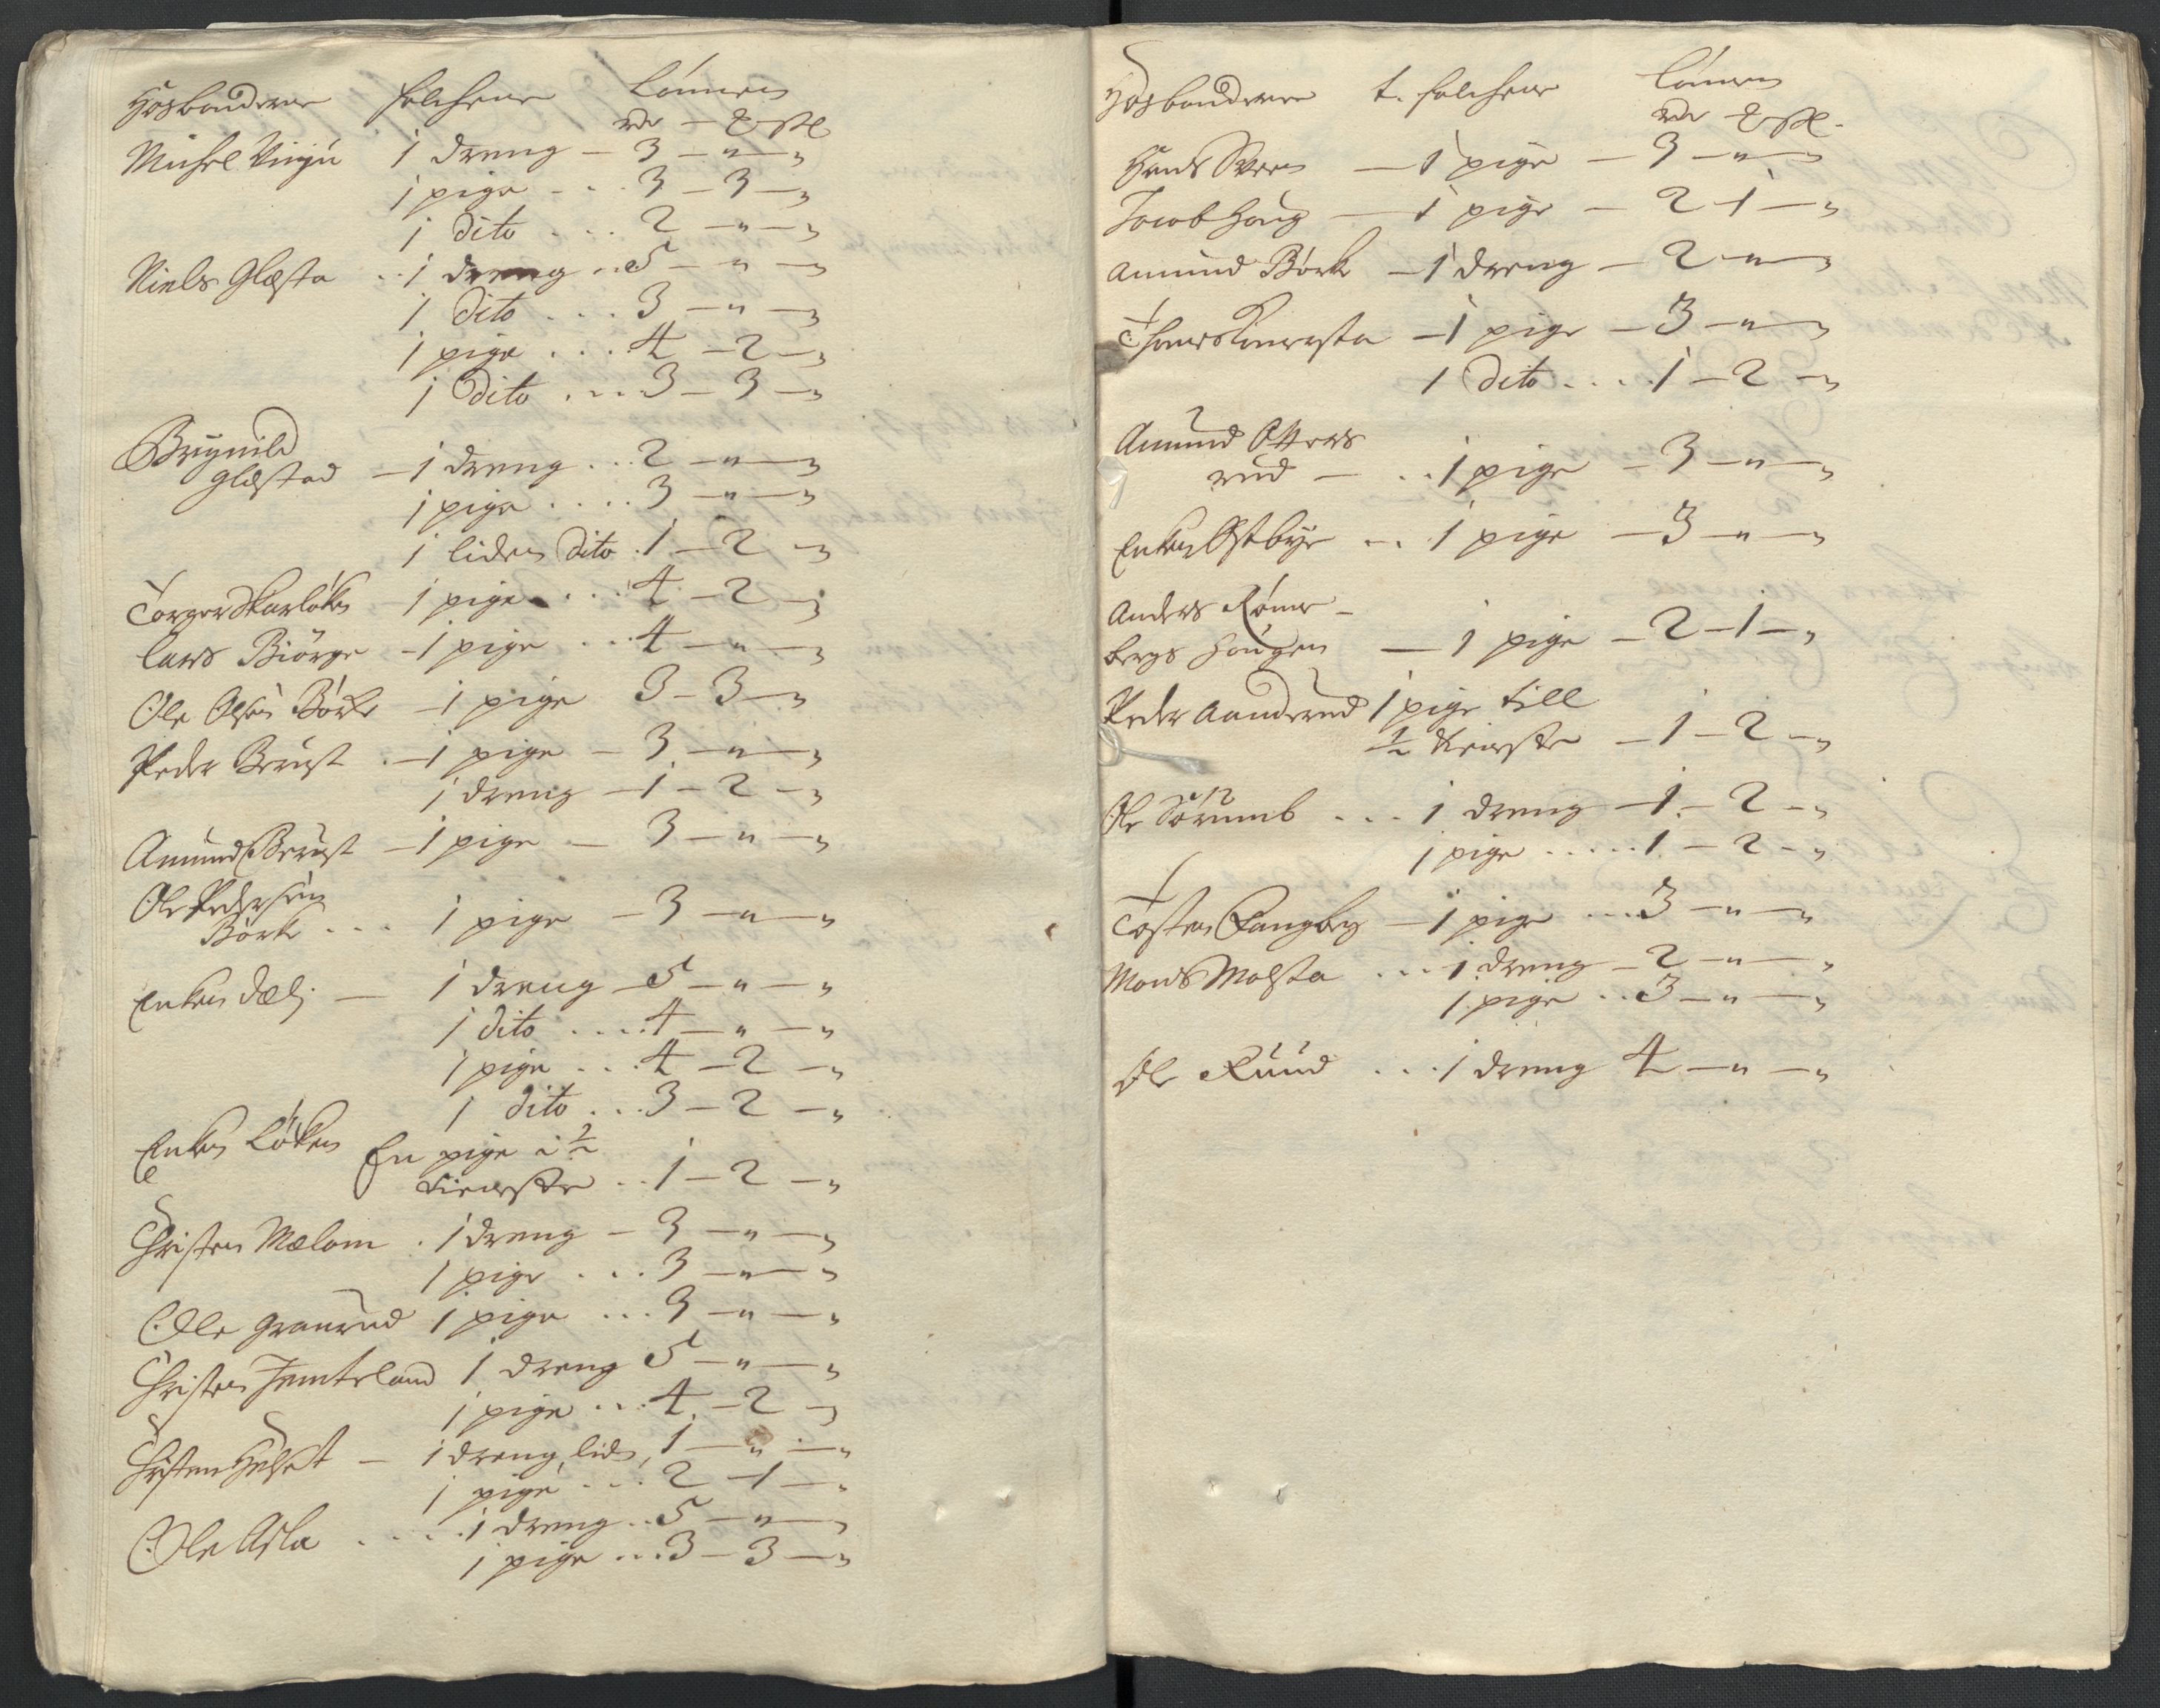 Hosbonderne folchene Lönnen
rdr — ort sk
Michel Vinju 1 dreng — 3 — " — "
1 pige . . . 3 — 3 — "
1 dito . . . . 2 — " — "
Niels Glæsta . . 1 dreng . . 5 — " — "
1 dito . . . . 3 — " — "
1 pige . . . . 4 — 2 — "
1 dito . . . . 3 — 3 — "
Brynild
Glæstad — 1 dreng . . . 2 — " — "
1 pige . . . . . 3 — " — "
1 liden dito . 1 — 2 — "
Torger Skarlöken 1 pige . . . 4 — 2 — "
Lars Biörge — 1 pige . . . 4 — " — "
Ole Olsen Börke — 1 pige 3 — 3 — "
Peder Berust . — 1 pige — 3 — " — "
1 dreng — 1 — 2 — "
Amund Berust — 1 pige — 3 — " — "
Ole Pedersen
Börke . . . 1 pige — 3 — " — "
Enken Dæli — 1 dreng — 5 — " — "
1 dito . . . . 4 — " — "
1 pige . . . 4 — 2 — "
1 dito . . . 3 — 2 — "
Enken Löken En pige i ½
tieneste . . 1 — 2 — "
Christen Mælom . 1 dreng — 3 — " — "
1 pige . . . 3 — " — "
Olle Granrud 1 pige . . . 3 — " — "
Christen Jemteland 1 dreng 5 — " — "
1 pige . . . 4 — 2 — "
Christen Helset — 1 dreng, liden, 1 — " — "
1 pige . . . 2 — 1 — "
Ole Asla . . . . 1 dreng . . 5 — " — "
1 pige . . . 3 — 3 — "
Hosbonderne t. folchene Lönnen
rdr ort sk
Hans Sveen — 1 pige — 3 — " — "
Jacob Houg — 1 pige — 2 — 1 — "
Amund Börke — 1 dreng — 2 — " — "
— 1 pige — 3 — " — "
1 dito . . . . 1 — 2 — "
Amund Otters
rud — . . 1 pige — 3 — " — "
Enken Østbye . . . 1 pige — 3 — " — "
Anders Röme-
bergs Hougen — 1 pige — 2 — 1 — "
Peder Aanderud 1 pige till
½ tieneste — 1 — 2 — "
Ole Sörumb . . . 1 dreng — 1 — 2 — "
1 pige . . . . . 1 — 2 — "
Tosten Fangberg — 1 pige . . . 3 — " — "
Mons Molsta . . . 1 dreng — 2 — " — "
1 pige . . 3 — " — "
Ole Ruud . . . 1 dreng 4 — " — "